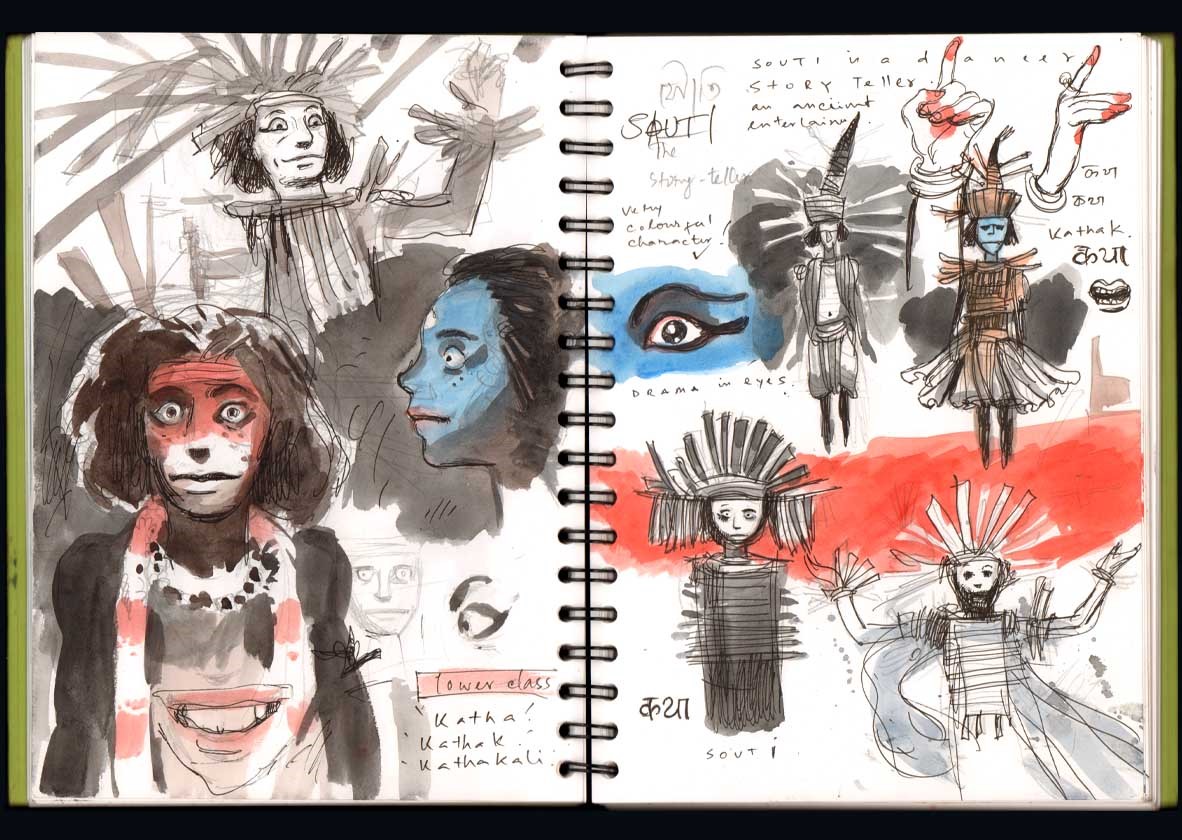 lower class
Katha!
Kathak
Kathakali.
SOUTI is a dancer,
STORY Teller.
an
entertainer.
SOUTI
the
story-teller
very
colourful
character.
कथा
कथा
Kathak.
कथा
DRAMA in eyes.
कथा
SOUTI